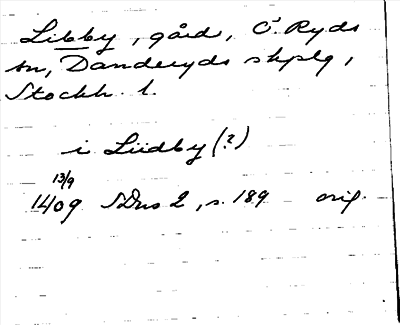 Libby, gård, Ö. Ryds
sn, Danderyds skplg,
Stockh. l.
i Lüdby (?)
13/9
1409 SDns 2, s. 189 orig.